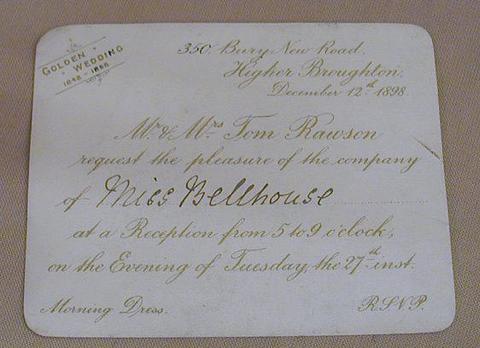 GOLDEN WEDDING
1848 - 1898
350 Bury New Road.
Higher Broughton.
December 12th 1898
Mr. & Mrs. Tom Rawson
request the pleasure of the company
of Miss Bellhouse
at a Reception from 5 to 9 o'clock,
on the Evening of Tuesday, the 27th inst.
Morning Dress.
R.S.V.P.